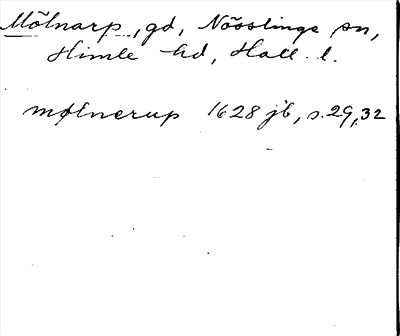 Mölnarp, gd, Nösslinge sn,
Himle hd, Hall. l.
mølnerup 1628 jb, s. 29, 32